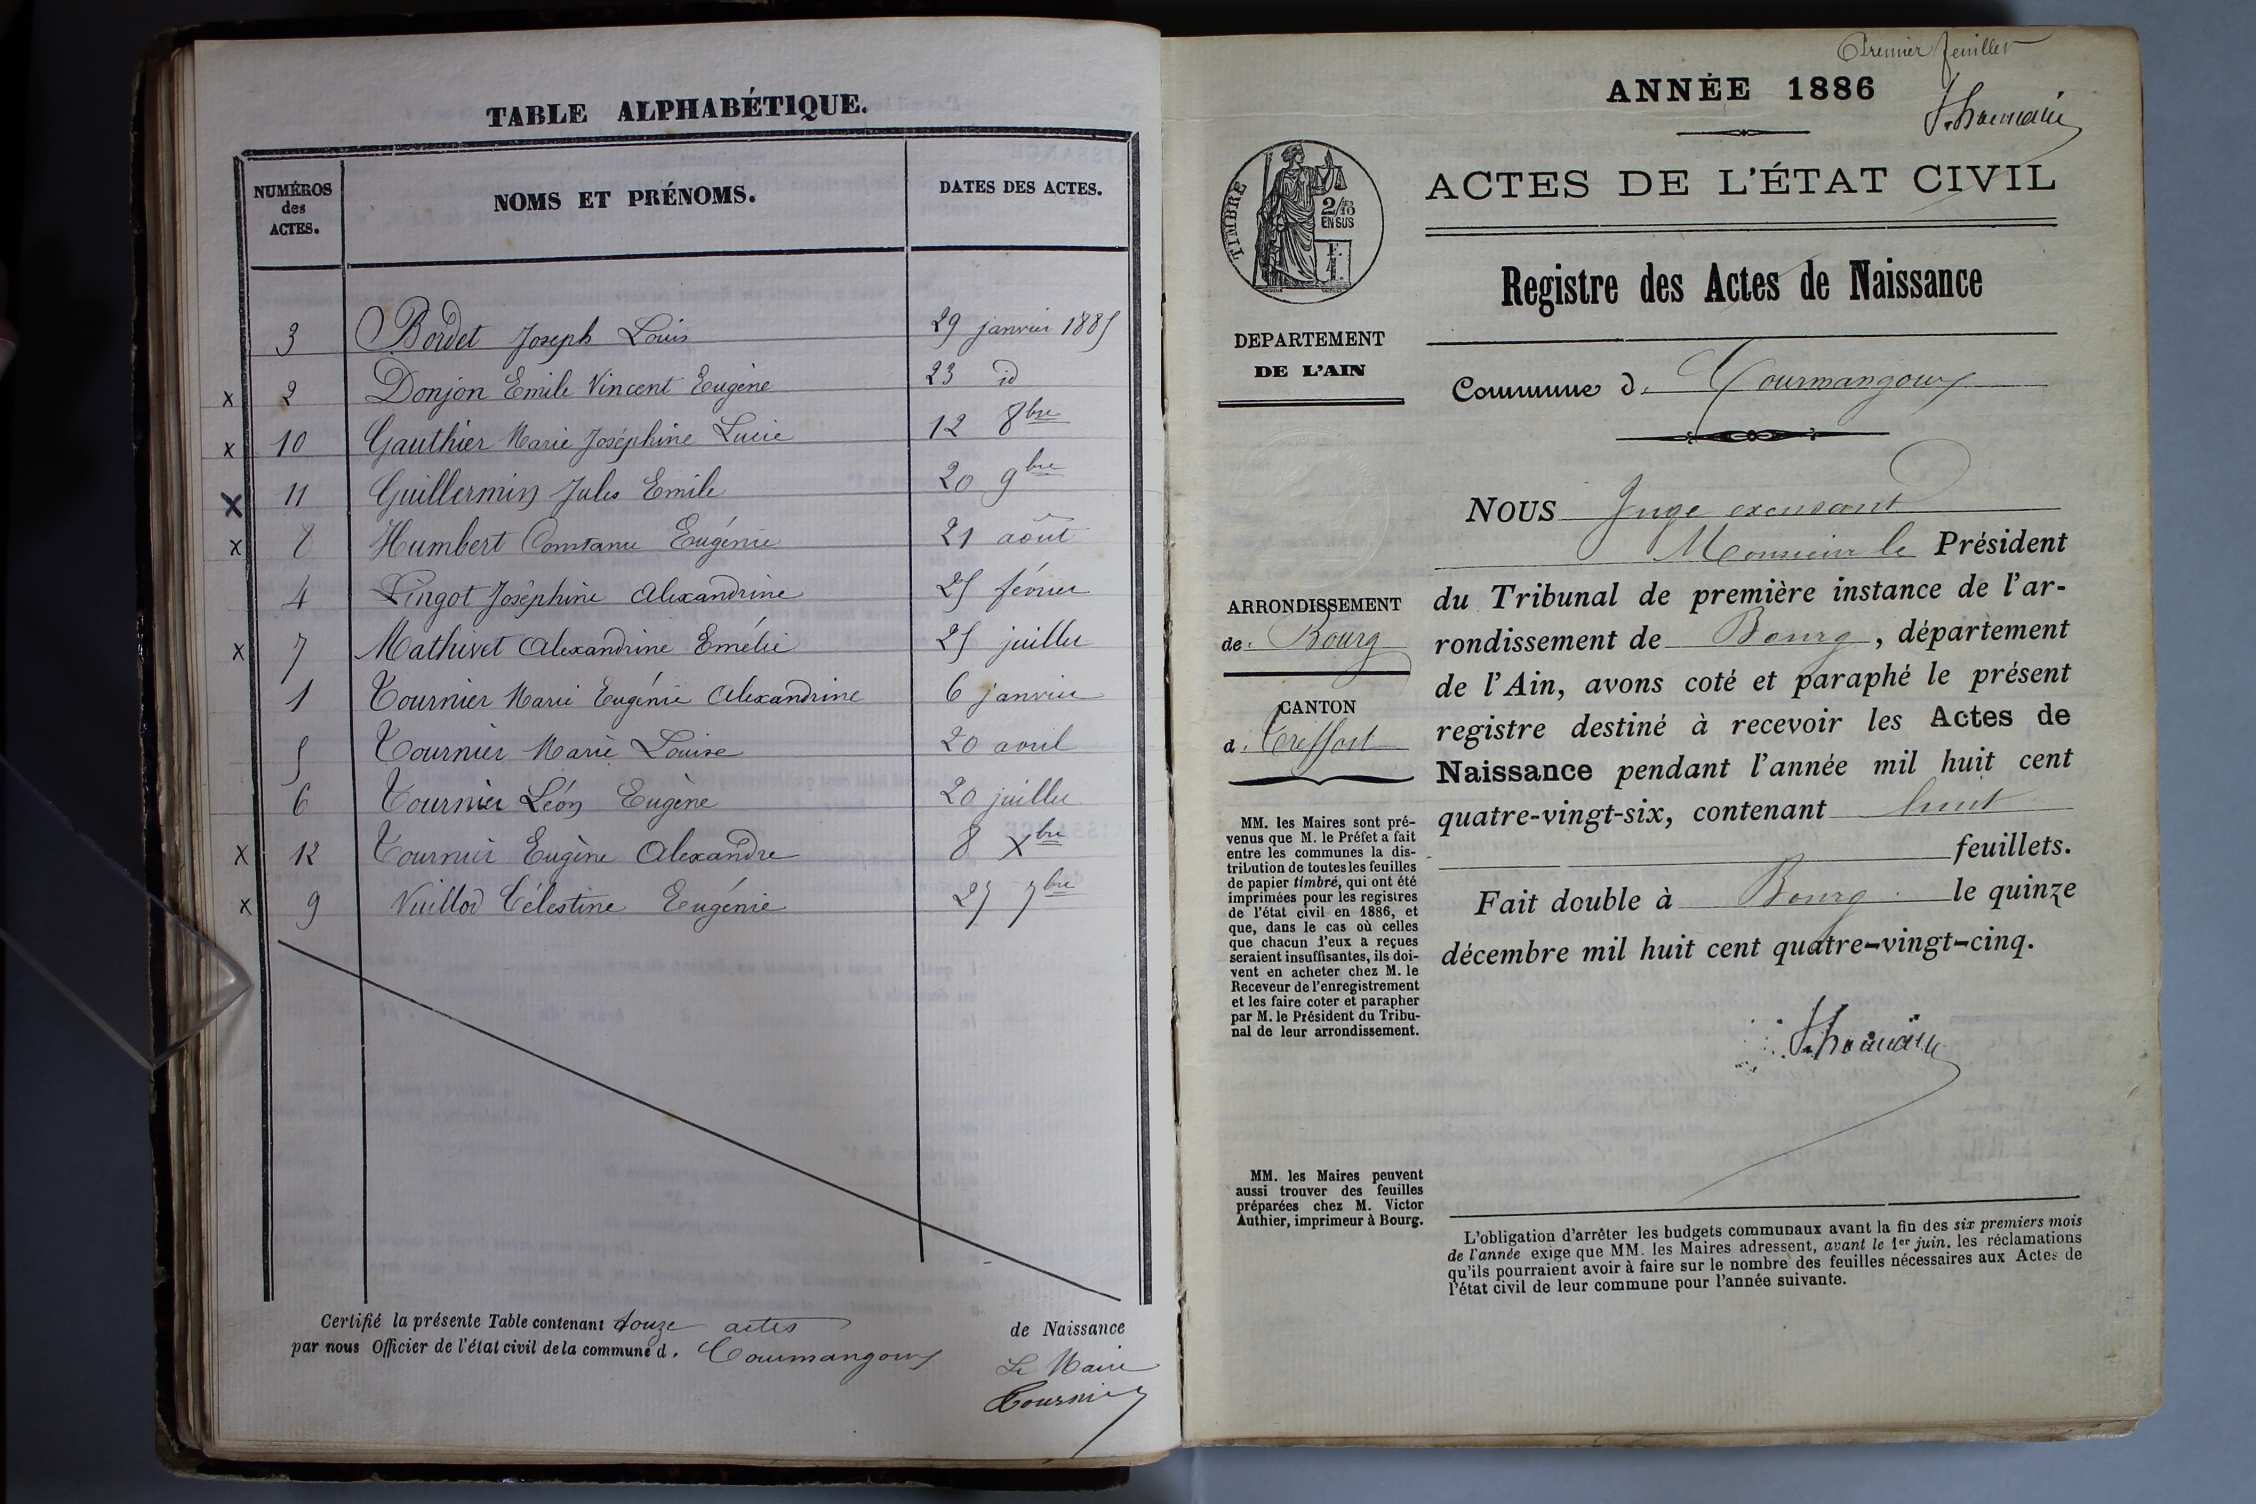 TABLE ALPHABÉTIQUE.
NUMÉROS
des
ACTES.
NOMS ET PRÉNOMS.
DATES DES ACTES.
3 Bordet Joseph Louis 29 janvier 1885
x 2 Donjon Emile Vincent Eugène 23 id
x 10 Gauthier Marie Joséphine Lucie 12 8bre
x 11 Guillermin Jules Emile 20 9bre
x 8 Humbert Constance Eugénie 21 août
4 Lingot Joséphine Alexandrine 25 février
x 7 Mathivet Alexandrine Emélie 25 juillet
1 Tournier Marie Eugénie Alexandrine 6 janvier
5 Tournier Marie Louise 20 avril
6 Tournier Léon Eugène 20 juillet
x 12 Tournier Eugène Alexandre 8 Xbre
x 9 Vuillod Célestine Eugénie 27 7bre
Certifié la présente Table contenant douze actes de Naissance
par nous Officier de l'état civil de la commune d. Courmangoux
Le Maire
Tournier
Premier feuillet
ANNÉE 1886
ACTES DE L'ÉTAT CIVIL
TIMBRE
2/10
EN SUS
Registre des Actes de Naissance
DEPARTEMENT
DE L'AIN
Commune d. Courmangoux
NOUS Juge excusant
Monsieur le Président
du Tribunal de première instance de l'ar-
rondissement de Bourg, département
de l'Ain, avons coté et paraphé le présent
registre destiné à recevoir les Actes de
Naissance pendant l'année mil huit cent
quatre-vingt-six, contenant huit
feuillets.
Fait double à Bourg le quinze
décembre mil huit cent quatre-vingt-cinq.
ARRONDISSEMENT
de. Bourg
CANTON
d. Treffort
MM. les Maires sont pré-
venus que M. le Préfet a fait
entre les communes la dis-
tribution de toutes les feuilles
de papier timbré, qui ont été
imprimées pour les registres
de l'état civil en 1886, et
que, dans le cas où celles
que chacun d'eux a reçues
seraient insuffisantes, ils doi-
vent en acheter chez M. le
Receveur de l'enregistrement
et les faire coter et parapher
par M. le Président du Tribu-
nal de leur arrondissement.
MM. les Maires peuvent
aussi trouver des feuilles
préparées chez M. Victor
Authier, imprimeur à Bourg.
L'obligation d'arrêter les budgets communaux avant la fin des six premiers mois
de l'année exige que MM. les Maires adressent, avant le 1er juin, les réclamations
qu'ils pourraient avoir à faire sur le nombre des feuilles nécessaires aux Actes de
l'état civil de leur commune pour l'année suivante.